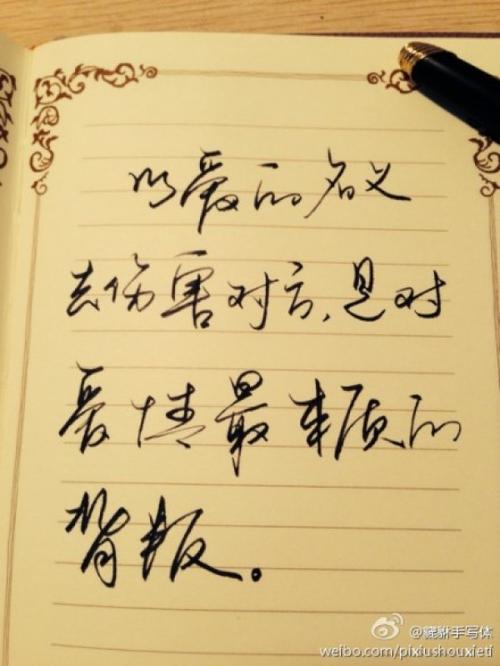 以爱的名义
去伤害对方,是对
爱情最本质的
背叛。
@貔貅手写体
weibo.com/pixiushouxieti